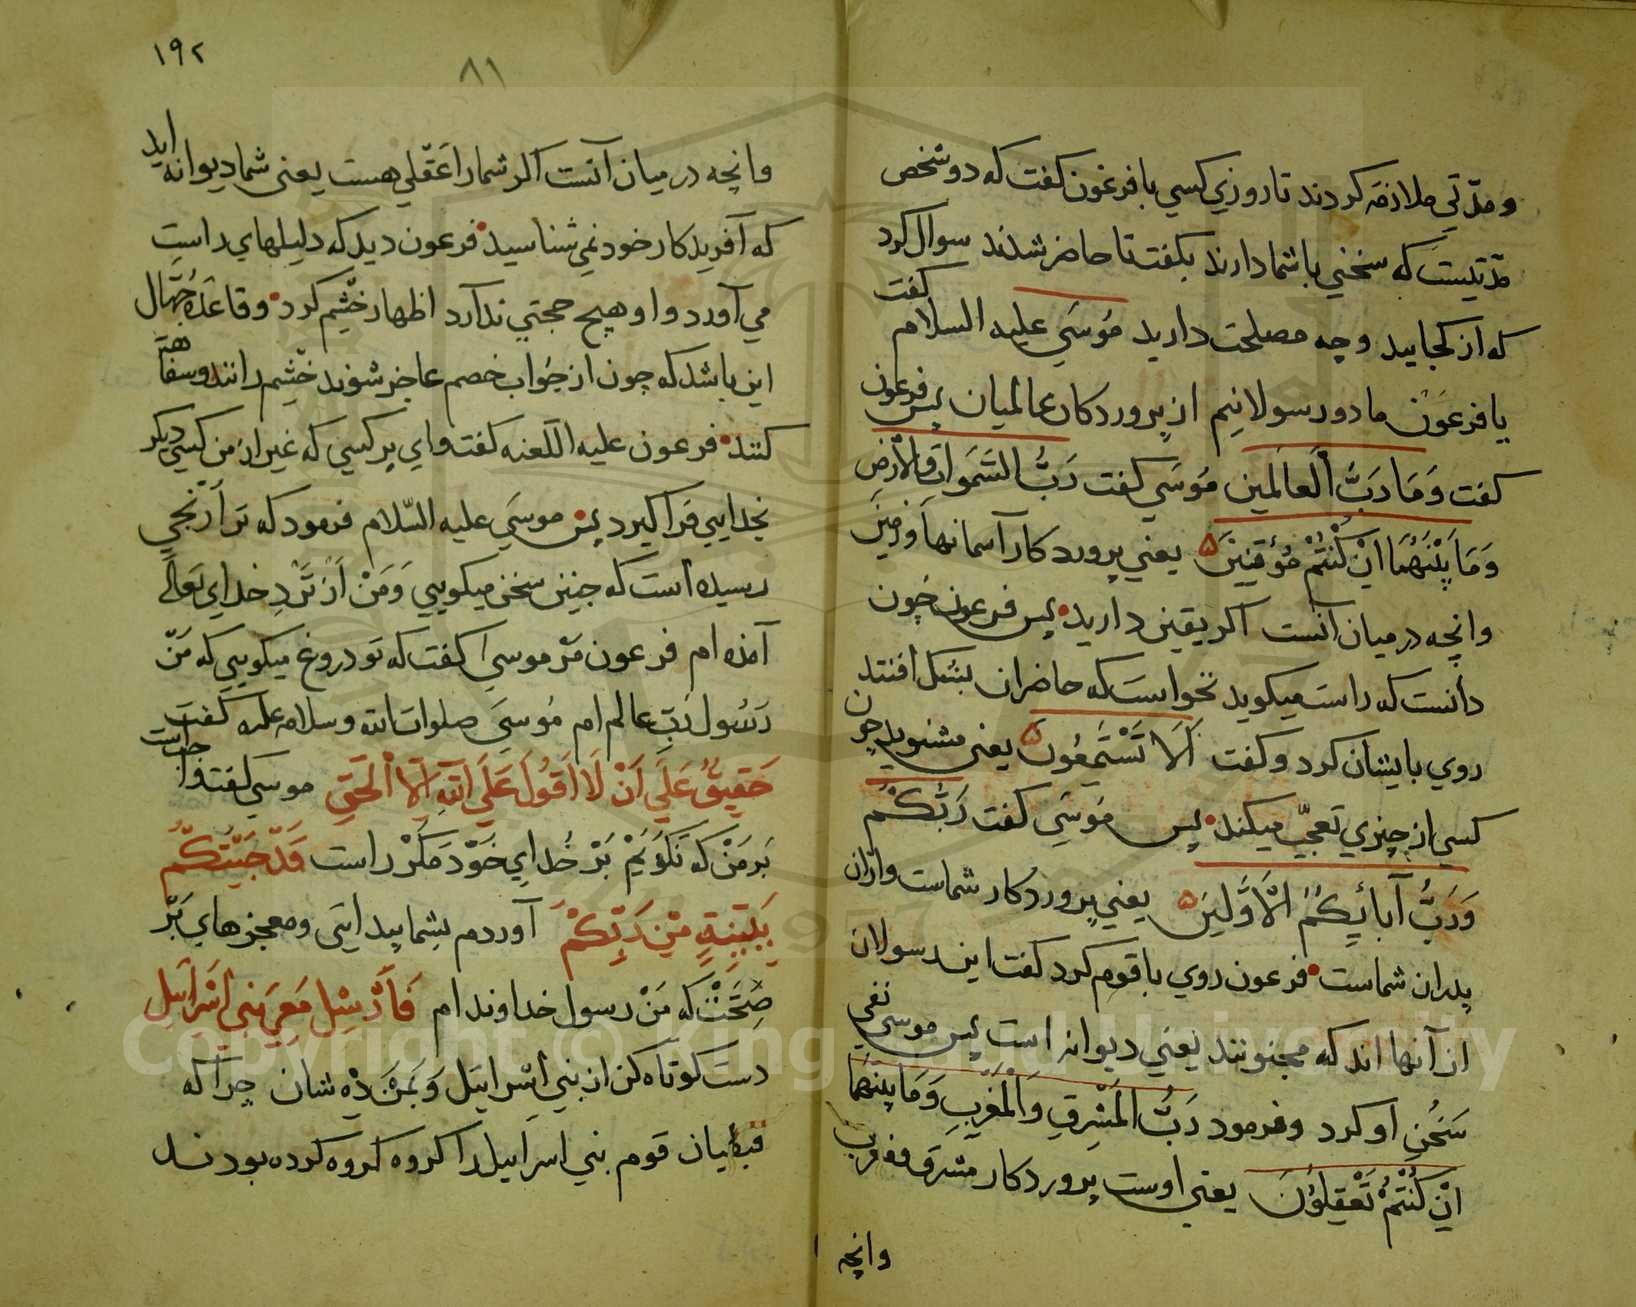 و مدّتي ملازمه كردند تا روزي كسي با فرعون كفت كه دو شخص
مدّتيست كه سخني با شما دارند بكفت تا حاضر شدند سوال كرد
كه از كجاييد و چه مصلحت داريد مُوسَي عليه السلام كفت
يا فرعَوْن ما دو رسولانيم از پروردكار عالميان پس فرعون
كفت وَمَا رَبُّ الْعَالَمِين مُوسَي كفت رَبُّ السَّمَوَاتِ وَالْأَرْضِ
وَمَا بَيْنَهُمَا اِنْ كُنْتُمْ مُؤْقِنِينَ ۵ يعني پروردكار آسمانها و زمين
وانچه در ميان آنست اكر يقين داريد پس فرعون چون
دانست كه راست ميكويد نخواست كه حاضران بشكل افتند
روي بايشان كرد و كفت اَلَا تَسْتَمِعُونَ ۵ يعني مشنويد چون
كسي از چيزي تعجّب ميكند پس مُوسَي كفت رَبُّكُمْ
وَرَبُّ آبَائِكُمْ الْاَوَّلِينَ ۵ يعني پروردكار شماست وازان
پدران شماست فرعون روي با قوم كرد كفت اين رسولان
از آنها اند كه مجنونند يعني ديوانه است پس موسي نفي
سَخُنِ او كرد و فرمود رَبُّ الْمَشْرِقِ وَالْمَغْرِبِ وَمَا بَيْنَهُمَا
اِنْ كُنْتُمْ تَعْقِلُونَ يعني اوست پروردكار مشرق و مغرب
وانچه
۱۹۲
۸۱
وانچه در ميان آنست اكر شما را عَقْلي هست يعني شما ديوانه ايد
كه آفريدكار خود نمي شناسيد فرعون ديد كه دليلهاي راست
مي آورد و او هيچ حجتي ندارد اظهار خشم كرد و قاعده جُهّال
اين باشد كه چون از جواب خصم عاجز شوند خشم رانند و سفاهة
كنند فرعون عليه اللعنه كفت واي بر كسي كه غير از من كسي ديكر
بخدايي فرا كيرد پس موسَي عليه السّلام فرمود كه ترا رنجي
رسيده است كه چنين سخن ميكويي وَمَنْ اَز نَزْدِ خداي تعالَي
آمده ام فرعون مَرْ موسي را كفت كه تو دروغ ميكويي كه مَنْ
رَسُول رَبِّ عالم ام مُوسَي صلوات الله وسلامه عليه كفت
حَقِيقٌ عَلَي اَنْ لَا اَقُولَ عَلَي اللّهِ اِلَّا الْحَقِّ موسي كفت واجبست
بَر مَنْ كه نَكويَمْ بَرْ خُداي خَوْد مَكَرْ راست قَدْ جِئْتُكُمْ
بِبَيِّنَةٍ مِّنْ رَبِّكُمْ آوردم بشما پيدايي و معجزهاي بَرْ
صِحَّتْ كه مَنْ رسول خداوند ام فَاَرْسِل مَعِيَ بَنِي اِسْرَائِل
دست كوتاه كن از بني اسْرايِيل وَ بمَنْ دِه شان چرا كه
قبطيان قوم بني اسرايل را كروه كروه كرده بودند